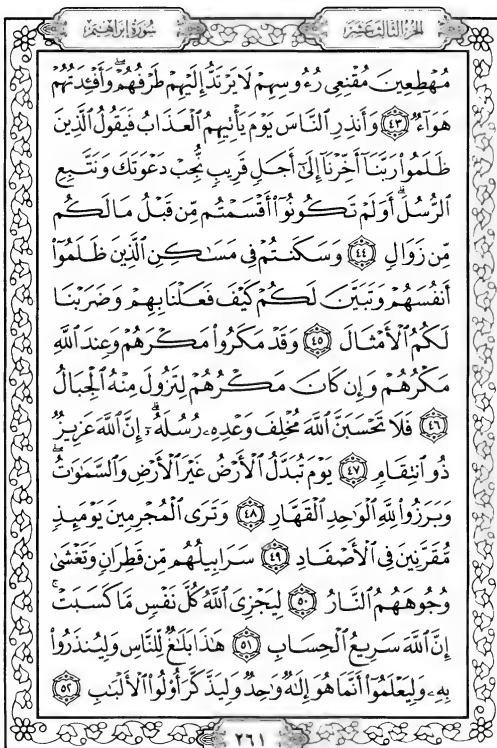 الجزء الثالث عشر سورة إبراهيم
مُهْطِعِينَ مُقْنِعِى رُءُوسِهِمْ لَا يَرْتَدُّ إِلَيْهِمْ طَرْفُهُمْ ۖ وَأَفْـِٔدَتُهُمْ
هَوَآءٌ ﴿٤٣﴾ وَأَنذِرِ ٱلنَّاسَ يَوْمَ يَأْتِيهِمُ ٱلْعَذَابُ فَيَقُولُ ٱلَّذِينَ
ظَلَمُوا۟ رَبَّنَآ أَخِّرْنَآ إِلَىٰٓ أَجَلٍ قَرِيبٍ نُّجِبْ دَعْوَتَكَ وَنَتَّبِعِ
ٱلرُّسُلَ ۗ أَوَلَمْ تَكُونُوٓا۟ أَقْسَمْتُم مِّن قَبْلُ مَا لَكُم
مِّن زَوَالٍ ﴿٤٤﴾ وَسَكَنتُمْ فِى مَسَـٰكِنِ ٱلَّذِينَ ظَلَمُوٓا۟
أَنفُسَهُمْ وَتَبَيَّنَ لَكُمْ كَيْفَ فَعَلْنَا بِهِمْ وَضَرَبْنَا
لَكُمُ ٱلْأَمْثَالَ ﴿٤٥﴾ وَقَدْ مَكَرُوا۟ مَكْرَهُمْ وَعِندَ ٱللَّهِ
مَكْرُهُمْ وَإِن كَانَ مَكْرُهُمْ لِتَزُولَ مِنْهُ ٱلْجِبَالُ
﴿٤٦﴾ فَلَا تَحْسَبَنَّ ٱللَّهَ مُخْلِفَ وَعْدِهِۦ رُسُلَهُۥٓ ۗ إِنَّ ٱللَّهَ عَزِيزٌ
ذُو ٱنتِقَامٍ ﴿٤٧﴾ يَوْمَ تُبَدَّلُ ٱلْأَرْضُ غَيْرَ ٱلْأَرْضِ وَٱلسَّمَـٰوَٰتُ ۖ
وَبَرَزُوا۟ لِلَّهِ ٱلْوَٰحِدِ ٱلْقَهَّارِ ﴿٤٨﴾ وَتَرَى ٱلْمُجْرِمِينَ يَوْمَئِذٍ
مُّقَرَّنِينَ فِى ٱلْأَصْفَادِ ﴿٤٩﴾ سَرَابِيلُهُم مِّن قَطِرَانٍ وَتَغْشَىٰ
وُجُوهَهُمُ ٱلنَّارُ ﴿٥٠﴾ لِيَجْزِىَ ٱللَّهُ كُلَّ نَفْسٍ مَّا كَسَبَتْ ۚ
إِنَّ ٱللَّهَ سَرِيعُ ٱلْحِسَابِ ﴿٥١﴾ هَـٰذَا بَلَـٰغٌ لِّلنَّاسِ وَلِيُنذَرُوا۟
بِهِۦ وَلِيَعْلَمُوٓا۟ أَنَّمَا هُوَ إِلَـٰهٌ وَٰحِدٌ وَلِيَذَّكَّرَ أُو۟لُوا۟ ٱلْأَلْبَـٰبِ ﴿٥٢﴾
٢٦١